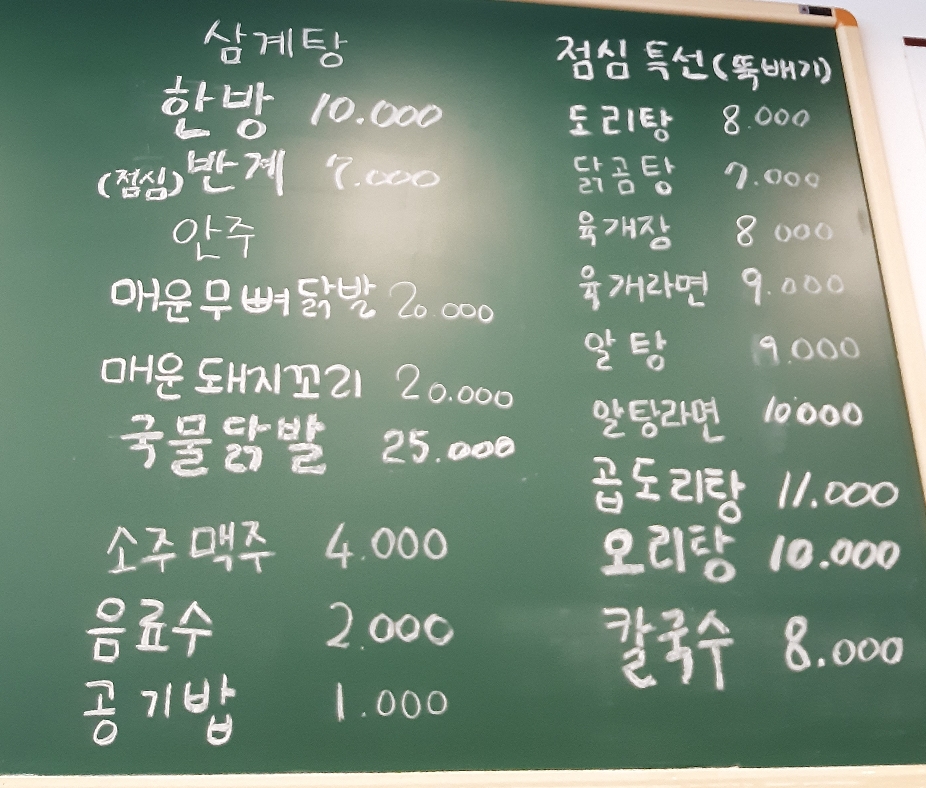 삼계탕
한방 10.000
(점심) 반계 7.000
안주
매운무뼈닭발 20.000
매운돼지꼬리 20.000
국물닭발 25.000
소주맥주 4.000
음료수 2.000
공기밥 1.000
점심특선(뚝배기)
도리탕 8.000
닭곰탕 7.000
육개장 8 000
육개라면 9.000
알탕 9.000
알탕라면 10000
곱도리탕 11.000
오리탕 10.000
칼국수 8.000